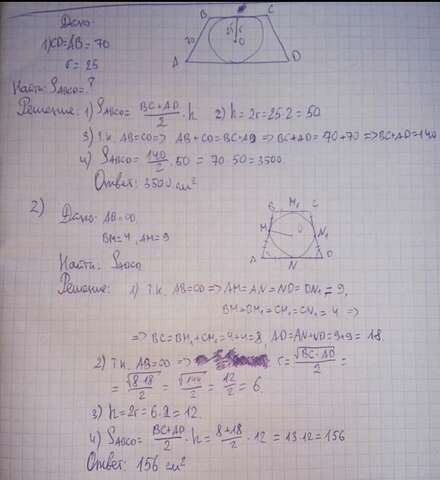 Дано:
1) CD=AB=70
r=25
Найти: S ABCD=?
B C
70 25 r
O
A D
Решение: 1) S ABCD = (BC+AD)/2 · h 2) h=2r=25·2=50
3) т.к. AB=CD => AB+CD=BC+AD => BC+AD=70+70 => BC+AD=140
4) S ABCD = 140/2 · 50 = 70·50=3500
Ответ: 3500 см²
2) Дано: AB=CD,
BM=4, AM=9
Найти: S ABCD
B M₁ C
M O N₁
A N D
Решение: 1) т.к. AB=CD => AM=AN=ND=DN₁=9,
BM=BM₁=CM₁=CN₁=4 =>
=> BC=BM₁+CM₁=4+4=8 AD=AN+ND=9+9=18.
2) т.к. AB=CD => r=√(BC·AD)/2 =
= √(8·18)/2 = √144/2 = 12/2 = 6.
3) h=2r=6·2=12.
4) S ABCD = (BC+AD)/2 · h = (8+18)/2 · 12 = 13·12=156
Ответ: 156 см²